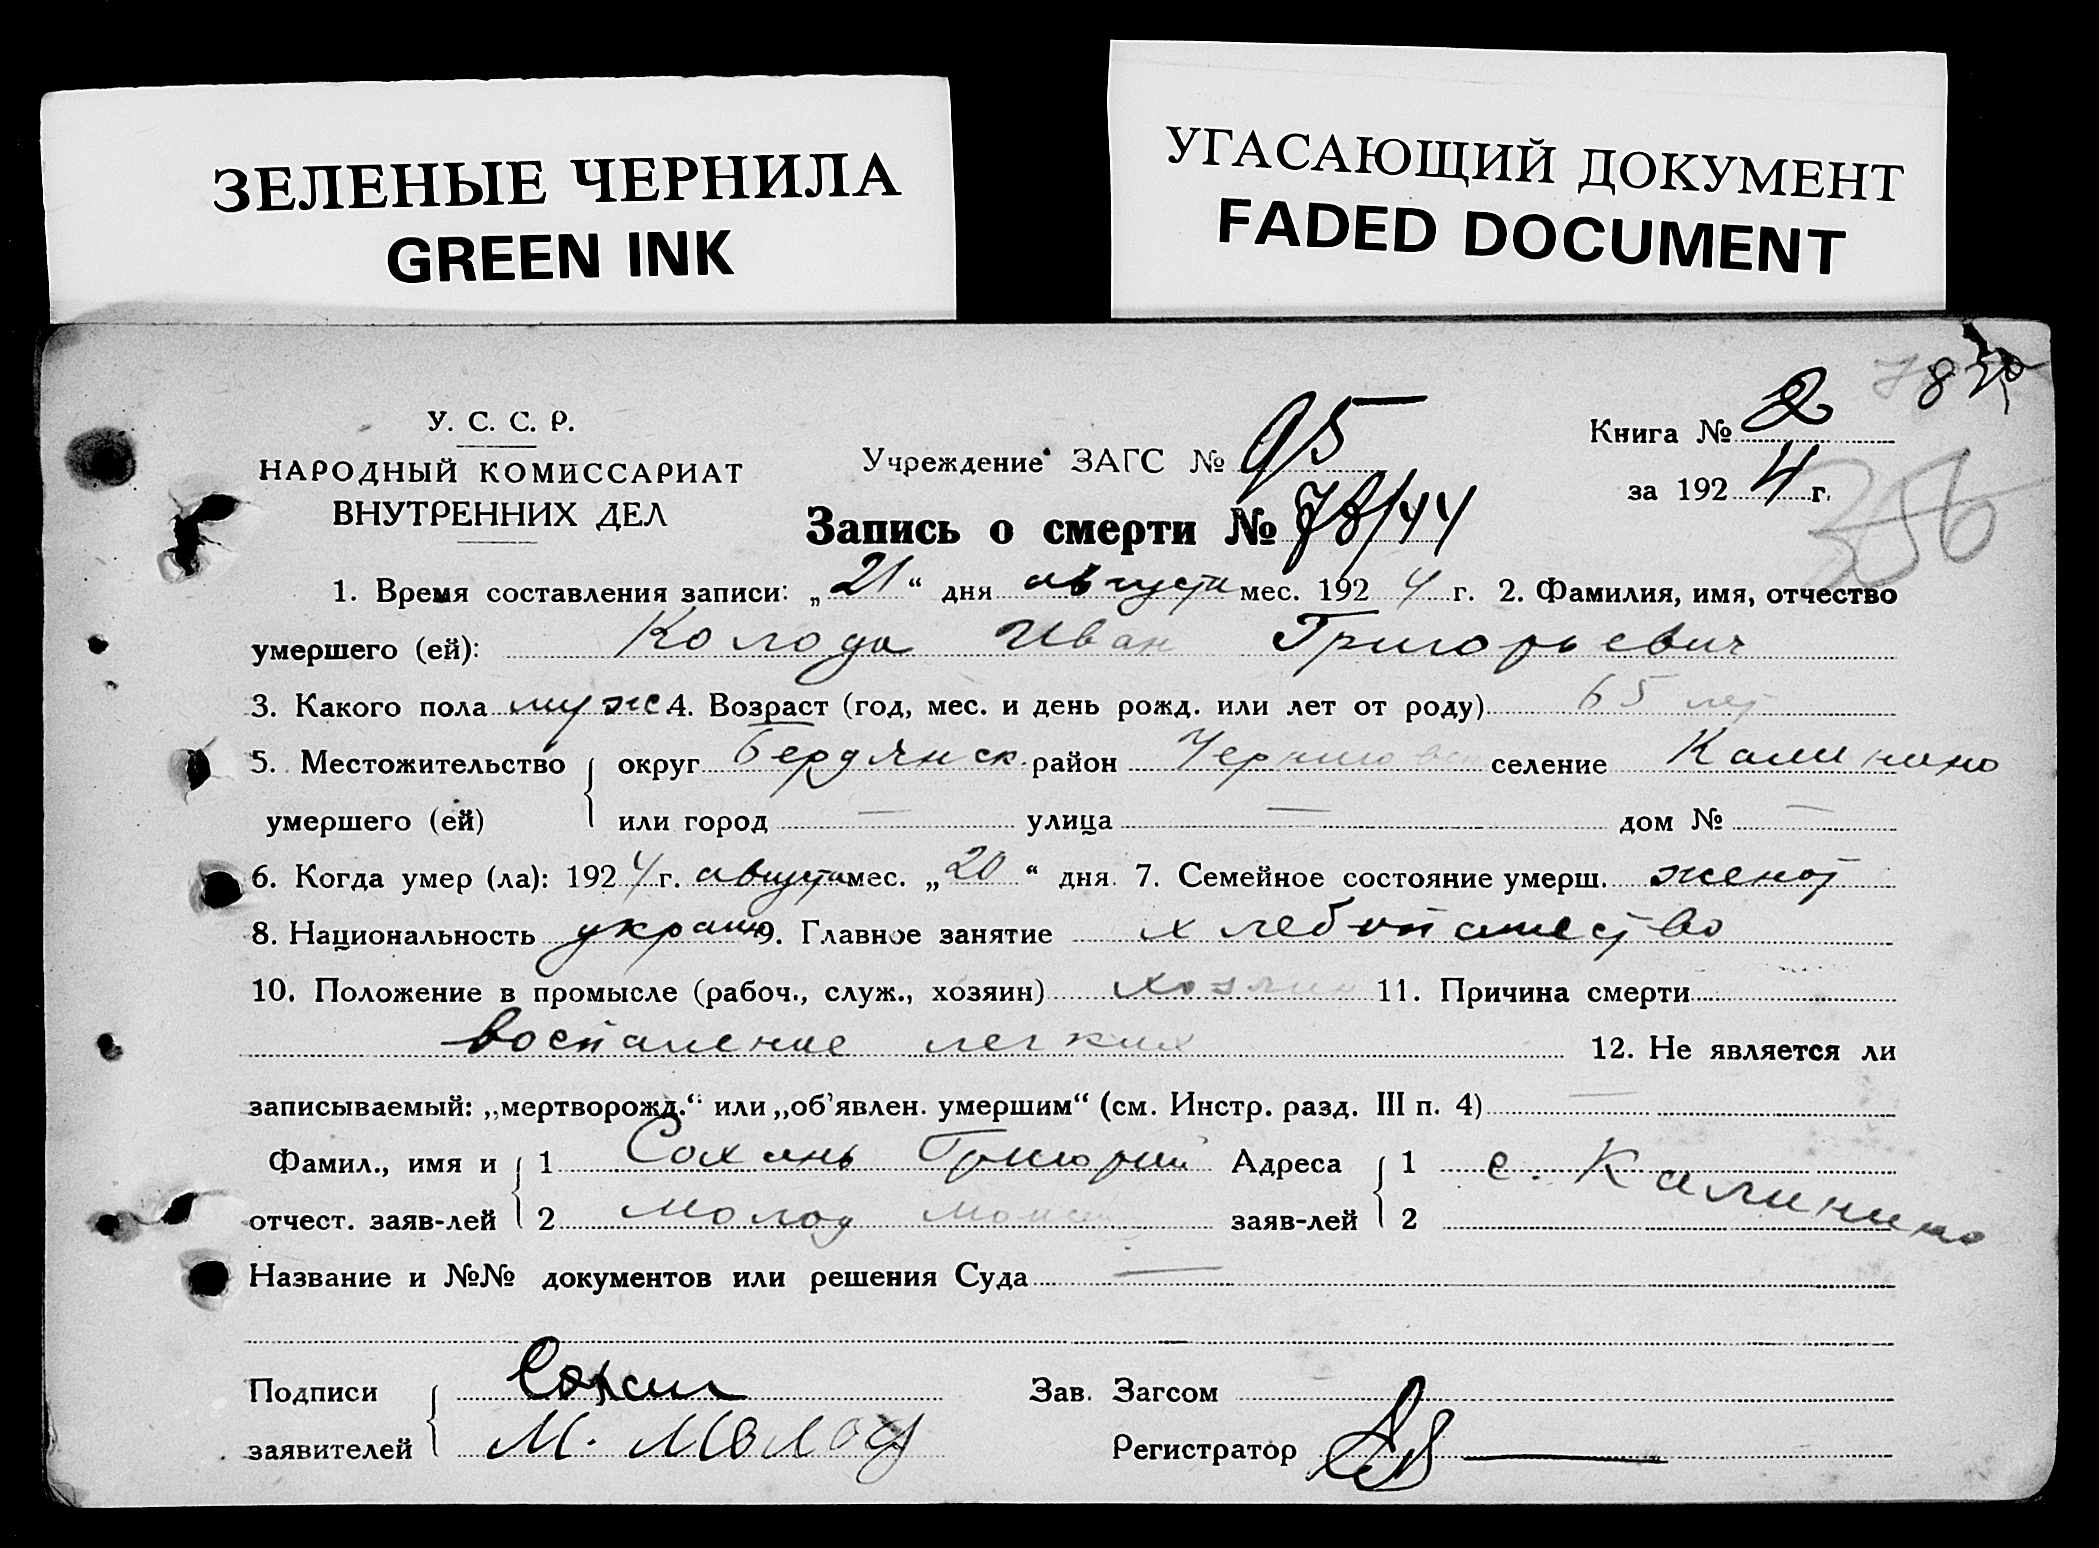 ЗЕЛЕНЫЕ ЧЕРНИЛА
GREEN INK
УГАСАЮЩИЙ ДОКУМЕНТ
FADED DOCUMENT
У. С. С. Р.
НАРОДНЫЙ КОМИССАРИАТ
ВНУТРЕННИХ ДЕЛ
Учреждение ЗАГС № 95
Книга № 2
за 1924 г.
356
Запись о смерти № 78/44
1. Время составления записи: „21“ дня августа мес. 1924 г. 2. Фамилия, имя, отчество
умершего (ей): Колода Иван Григорьевич
3. Какого пола муж 4. Возраст (год, мес. и день рожд. или лет от роду) 65 лет
5. Местожительство округ Бердянск. район Черниговск селение Калинино
умершего (ей) или город — улица — дом № —
6. Когда умер (ла): 1924 г. августа мес. „20“ дня. 7. Семейное состояние умерш. женат
8. Национальность украин 9. Главное занятие хлебопашество
10. Положение в промысле (рабоч., служ., хозяин) хозяин 11. Причина смерти
воспаление легких 12. Не является ли
записываемый: „мертворожд.“ или „об’явлен. умершим“ (см. Инстр. разд. III п. 4) —
Фамил., имя и 1 Сохань Григорий Адреса 1 с. Калинино
отчест. заяв-лей 2 Молод заяв-лей 2
Название и №№ документов или решения Суда —
Подписи Сохань Зав. Загсом
заявителей М. Молод Регистратор